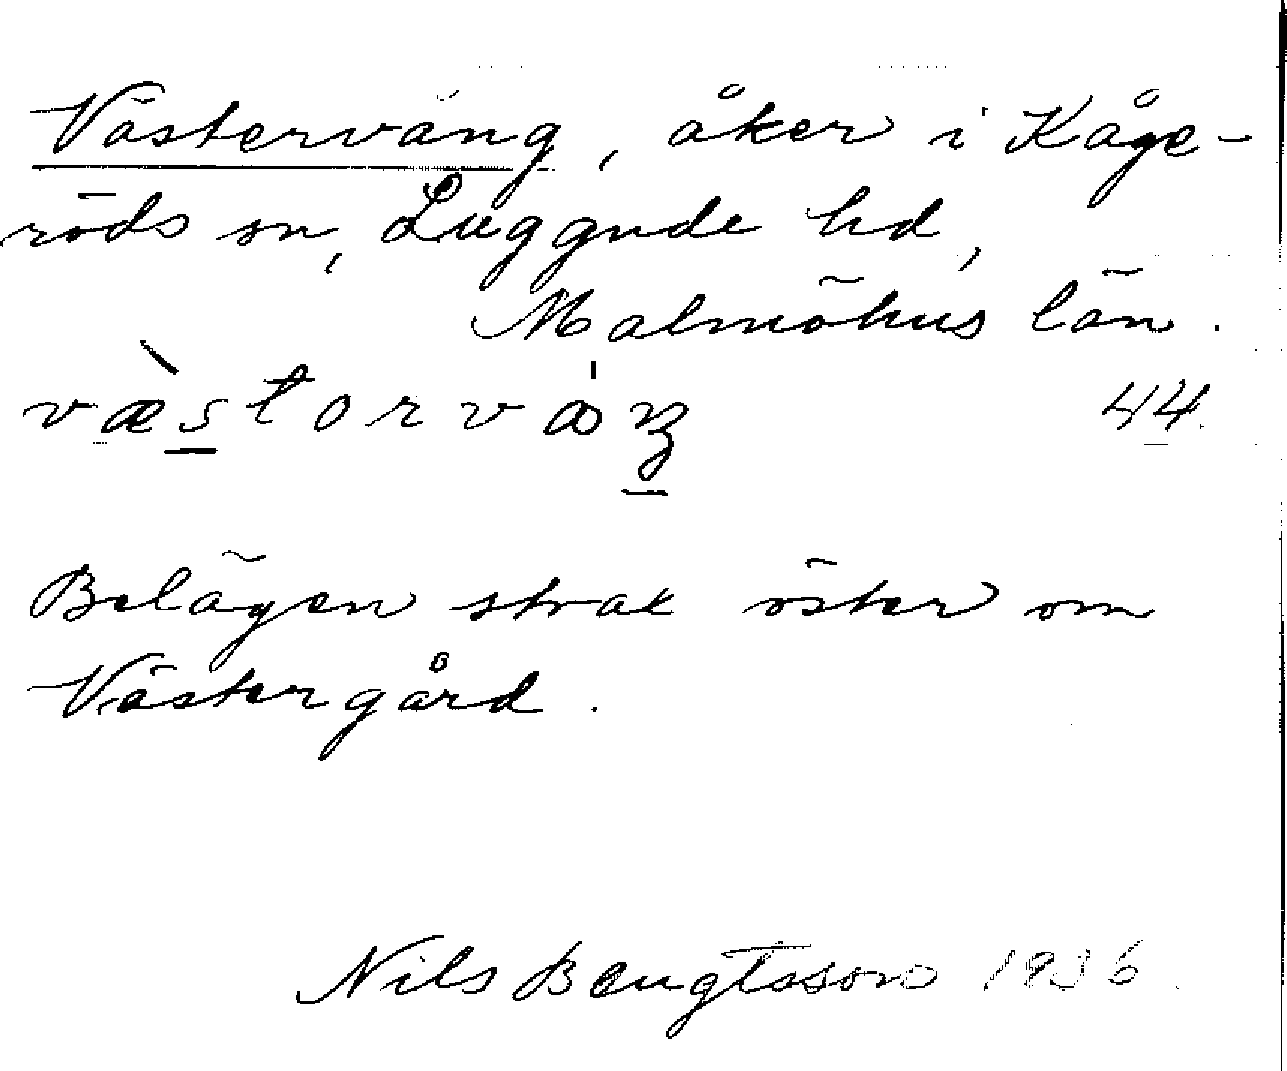 Västervång, åker i Kåge-
röds sn, Luggude hd,
Malmöhus län.
væ̀storvaŋ 44.
Belägen strax öster om
Västergård.
Nils Bengtsson 1936